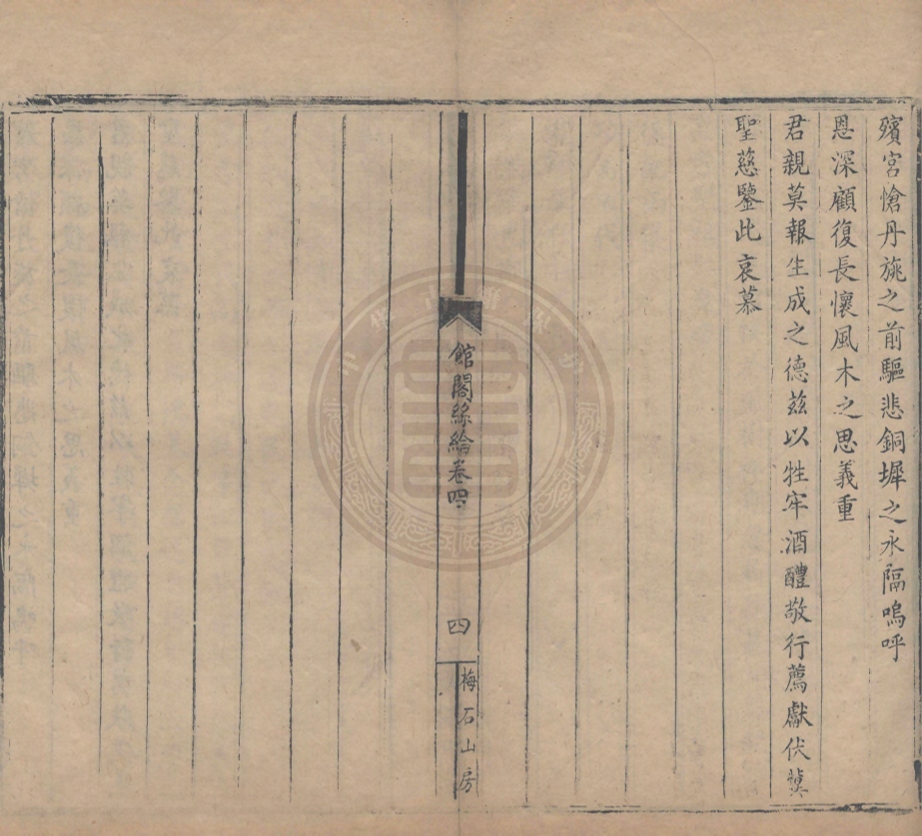 殯宮愴丹旐之前驅悲銅墀之永隔嗚呼
恩深顧復長懷風木之思義重
君親莫報生成之德茲以牲牢酒醴敬行薦獻伏冀
聖慈鑒此哀慕
館閣絲綸卷四
四
梅石山房